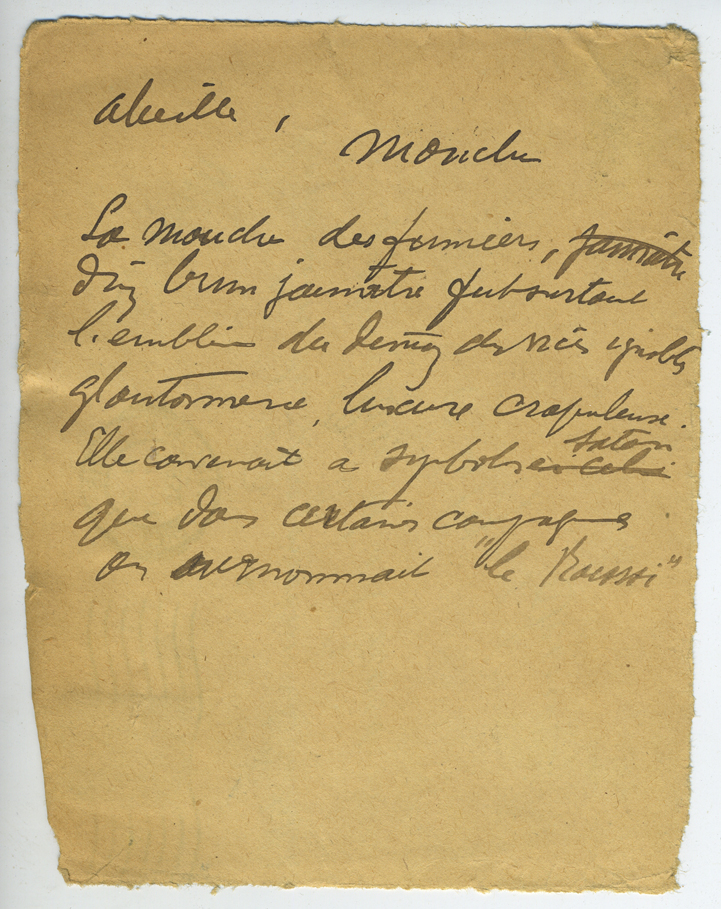 Abeille,
Mouche
La mouche des fumiers, jaunâtre
d'un brun jaunâtre fut surtout
l'emblème du démon des vices ignobles
gloutonnerie, luxure crapuleuse.
Satan
Elle convenait a symboliser celui
que dans certaines campagnes
on surnommait "le Roussi"